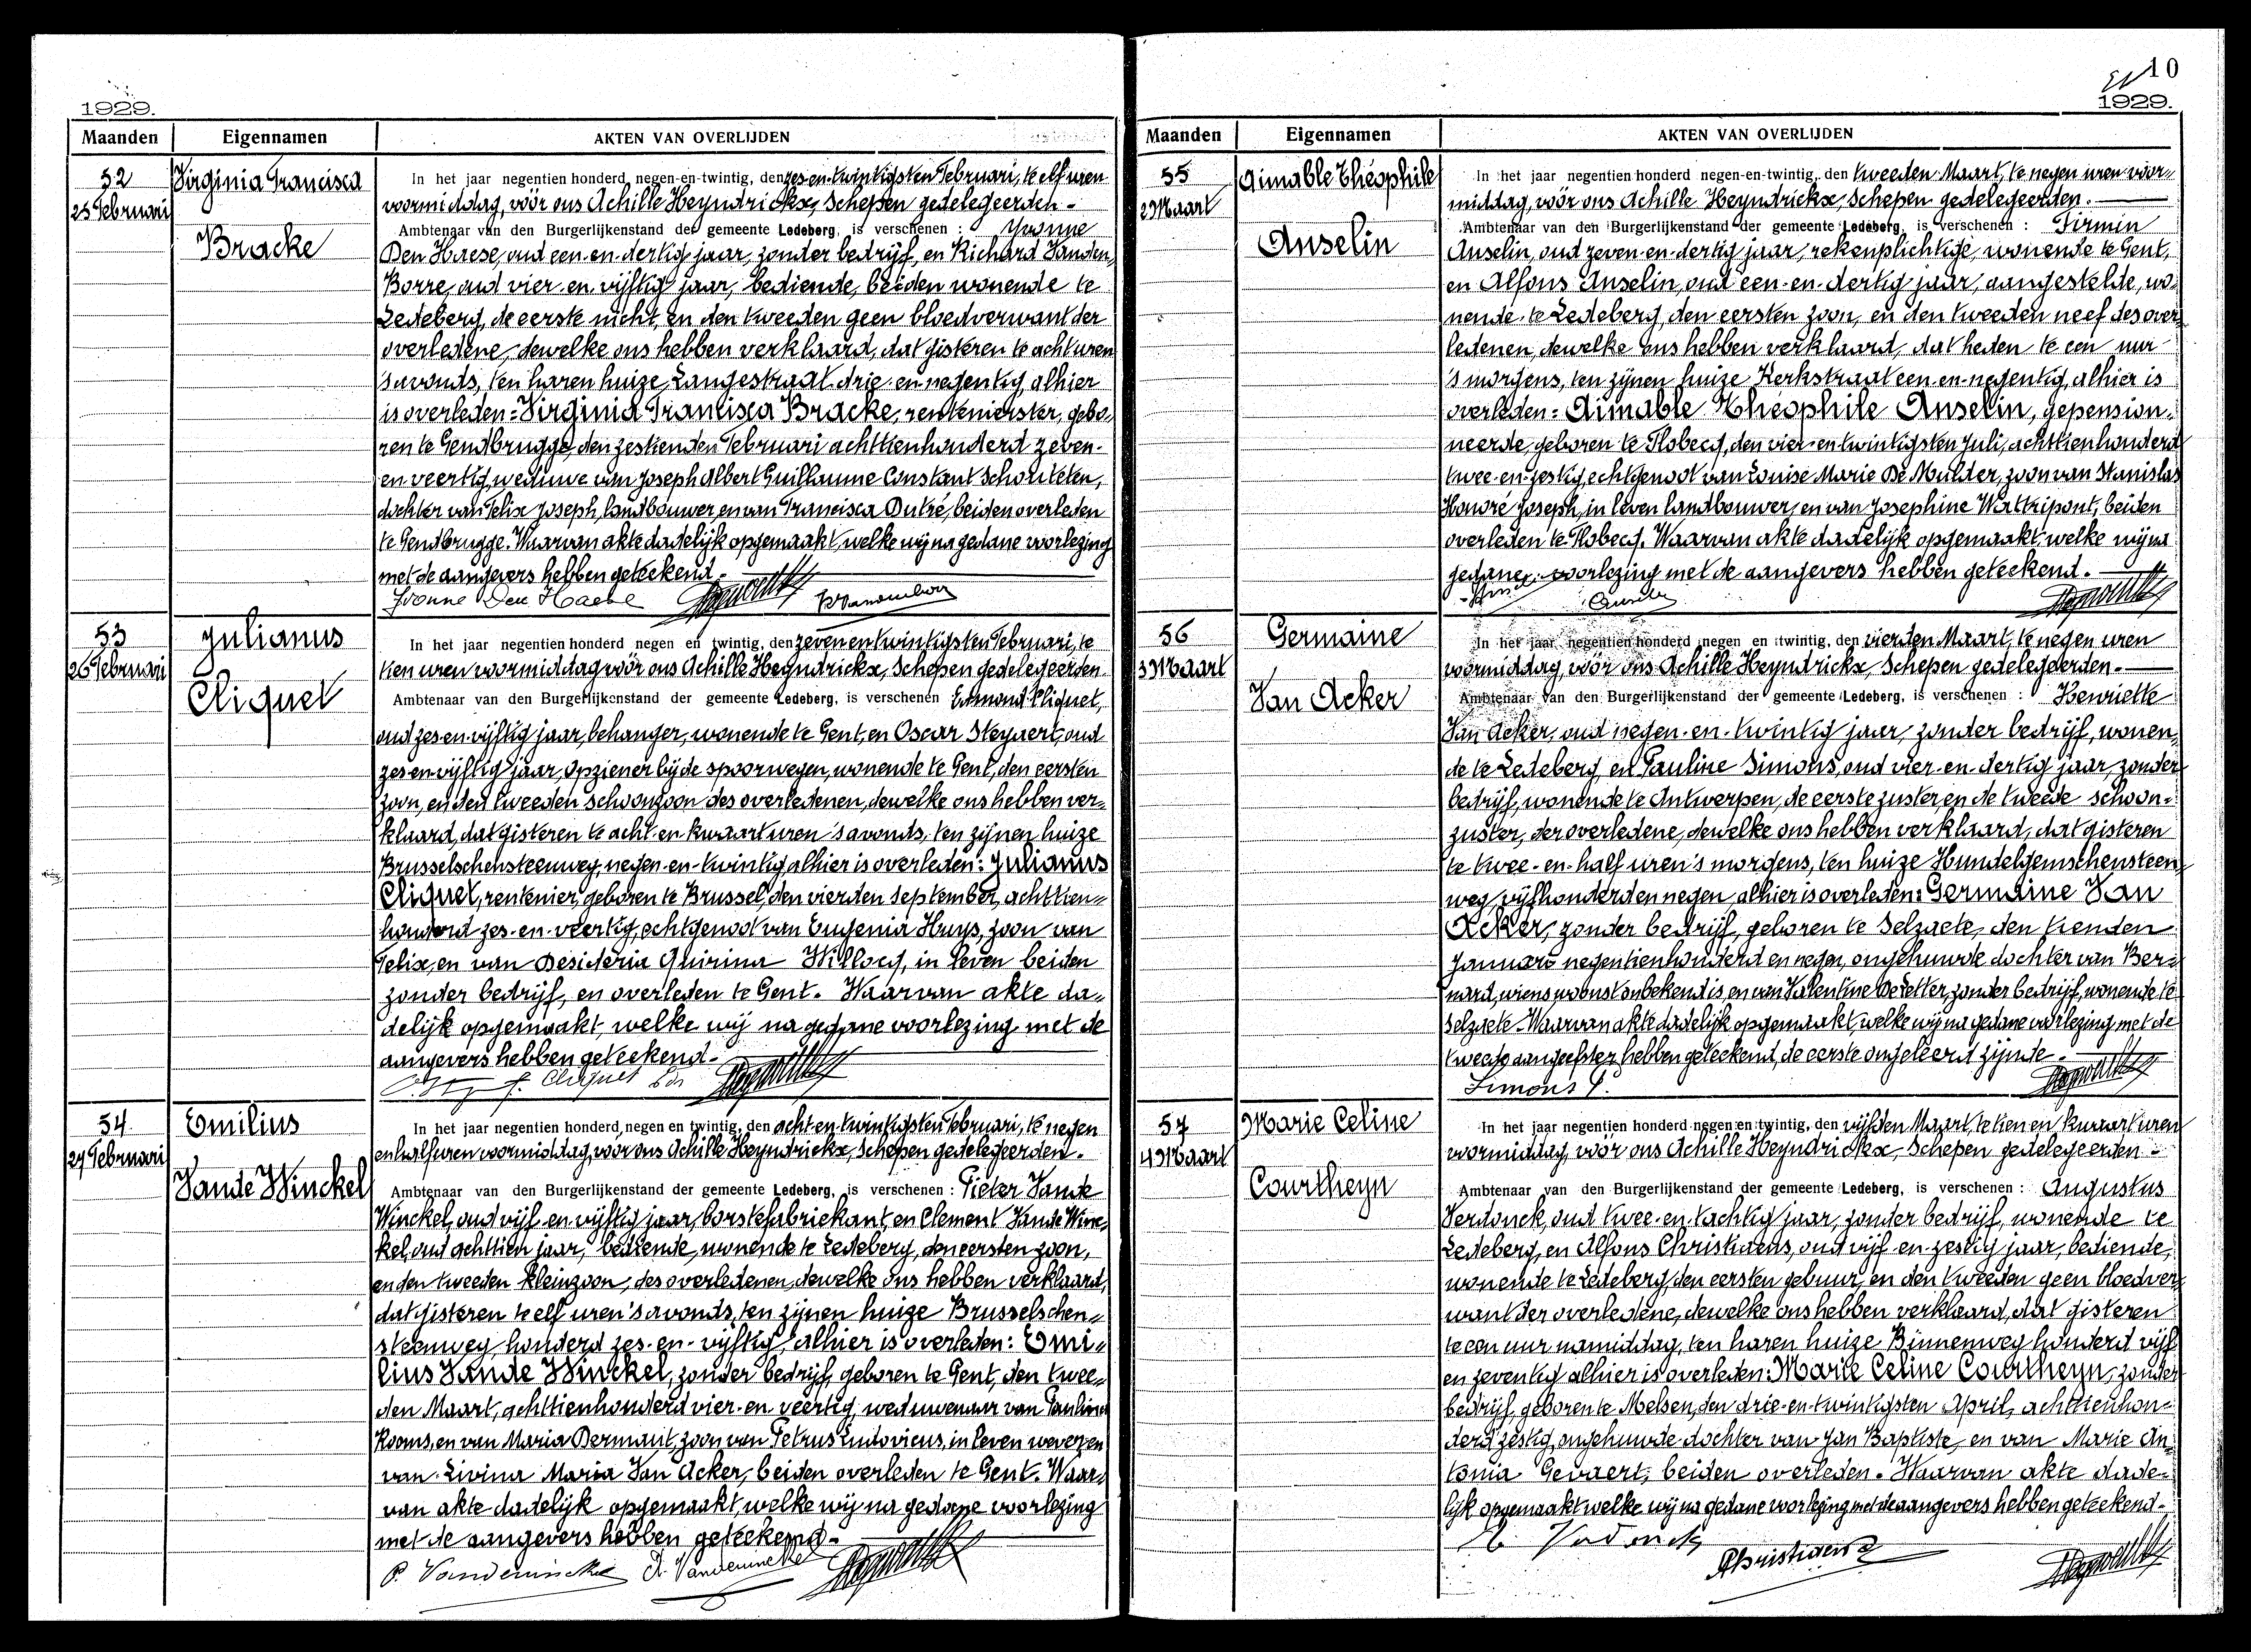 1929.
Maanden
Eigennamen
AKTEN VAN OVERLIJDEN
52
25 Februari
Virginia Francisca
Bracke
In het jaar negentien honderd negen-en-twintig, den zes-en-twintigsten Februari, te elf uren
voormiddag, vóór ons Achille Heyndrickx, Schepen gedelegeerden -
Ambtenaar van den Burgerlijkenstand der gemeente Ledeberg, is verschenen : Yvonne
Den Haese, oud een-en-dertig jaar, zonder bedrijf, en Richard Vanden
Borre, oud vier-en-vijftig jaar, bediende, beiden wonende te
Ledeberg, de eerste nicht, en den tweeden geen bloedverwant der
overledene, dewelke ons hebben verklaard, dat gisteren te acht uren
's avonds, ten haren huize Langestraat drie-en-negentig, alhier
is overleden: Virginia Francisca Bracke, rentenierster, gebo-
ren te Gendbrugge, den zestienden Februari achttienhonderd zeven-
en-veertig, weduwe van Joseph Albert Guillaume Constant Schouteten,
dochter van Felix Joseph, landbouwer, en van Francisca Dutré, beiden overleden
te Gendbrugge. Waarvan akte dadelijk opgemaakt, welke wij na gedane voorlezing
met de aangevers hebben geteekend.
Yvonne Den Haese
53
26 Februari
Julianus
Cliquet
In het jaar negentien honderd negen en twintig, den zeven en twintigsten Februari, te
tien uren voormiddag vóór ons Achille Heyndrickx, Schepen gedelegeerden
Ambtenaar van den Burgerlijkenstand der gemeente Ledeberg, is verschenen Edmond Cliquet,
oud zes-en-vijftig jaar, behanger, wonende te Gent, en Oscar Steyaert, oud
zes-en-vijftig jaar, opziener bij de spoorwegen, wonende te Gent, den eersten
zoon, en den tweeden schoonzoon des overledenen, dewelke ons hebben ver-
klaard, dat gisteren te acht-en-kwaart uren 's avonds, ten zijnen huize
Brusselschensteenweg, negen-en-twintig, alhier is overleden: Julianus
Cliquet, rentenier, geboren te Brussel, den vierden September, achttien-
honderd zes-en-veertig, echtgenoot van Eugenia Huys, zoon van
Felix, en van Desideria Quirina Willocq, in leven beiden
zonder bedrijf, en overleden te Gent. Waarvan akte da-
delijk opgemaakt, welke wij na gedane voorlezing met de
aangevers hebben geteekend.
Cliquet
54
27 Februari
Emilius
Vande Winckel
In het jaar negentien honderd negen en twintig, den acht en twintigsten Februari, te negen
en half uren voormiddag, vóór ons Achille Heyndrickx, Schepen gedelegeerden.
Ambtenaar van den Burgerlijkenstand der gemeente Ledeberg, is verschenen : Pieter Vande
Winckel, oud vijf-en-vijftig jaar, borstelfabriekant, en Clement Vande Winc-
kel, oud achttien jaar, bediende, wonende te Ledeberg, den eersten zoon,
en den tweeden kleinzoon, des overledenen, dewelke ons hebben verklaard,
dat gisteren te elf uren 's avonds, ten zijnen huize Brusselschen-
steenweg, honderd zes-en-vijftig, alhier is overleden: Emi-
lius Vande Winckel, zonder bedrijf, geboren te Gent, den twee-
den Maart, achttienhonderd vier-en-veertig, weduwenaar van Paulina
Rooms, en van Maria Dermaut, zoon van Petrus Ludovicus, in leven wever, en
van Livina Maria Van Acker, beiden overleden te Gent. Waar-
van akte dadelijk opgemaakt, welke wij na gedane voorlezing
met de aangevers hebben geteekend.
P. Vandewinckel Vandewinckel
10
1929.
Maanden
Eigennamen
AKTEN VAN OVERLIJDEN
55
2 Maart
Aimable Théophile
Anselin
In het jaar negentien honderd negen-en-twintig, den tweeden Maart, te negen uren voor-
middag, vóór ons Achille Heyndrickx, Schepen gedelegeerden.
Ambtenaar van den Burgerlijkenstand der gemeente Ledeberg, is verschenen : Firmin
Anselin, oud zeven-en-dertig jaar, rekenplichtige, wonende te Gent,
en Alfons Anselin, oud een-en-dertig jaar, aangestelde, wo-
nende te Ledeberg, den eersten zoon, en den tweeden neef des over-
ledenen, dewelke ons hebben verklaard, dat heden te een uur
's morgens, ten zijnen huize Kerkstraat een-en-negentig, alhier is
overleden: Aimable Théophile Anselin, gepension-
neerde, geboren te Flobecq, den vier-en-twintigsten Juli, achttienhonderd
twee-en-zestig, echtgenoot van Louise Marie De Mulder, zoon van Stanislas
Honoré Joseph, in leven landbouwer, en van Josephine Wattripont, beiden
overleden te Flobecq. Waarvan akte dadelijk opgemaakt, welke wij na
gedane voorlezing met de aangevers hebben geteekend.
56
3 Maart
Germaine
Van Acker
In het jaar negentien honderd negen en twintig, den vierden Maart, te negen uren
voormiddag, vóór ons Achille Heyndrickx, Schepen gedelegeerden.
Ambtenaar van den Burgerlijkenstand der gemeente Ledeberg, is verschenen : Henriette
Van Acker, oud negen-en-twintig jaar, zonder bedrijf, wonen-
de te Ledeberg, en Pauline Simons, oud vier-en-dertig jaar, zonder
bedrijf, wonende te Antwerpen, de eerste zuster en de tweede schoon-
zuster, der overledene, dewelke ons hebben verklaard, dat gisteren
te twee-en-half uren 's morgens, ten huize Hundelgemschensteen-
weg, vijfhonderd en negen, alhier is overleden: Germaine Van
Acker, zonder bedrijf, geboren te Selzaete, den tienden
Januari negentienhonderd en negen, ongehuwde dochter van Ber-
nard, wiens woonst onbekend is, en van Valentine De Letter, zonder bedrijf, wonende te
Selzaete. Waarvan akte dadelijk opgemaakt, welke wij na gedane voorlezing met de
tweede aangeefster hebben geteekend, de eerste ongeleerd zijnde.
Simons P.
57
4 Maart
Marie Celine
Courtheyn
In het jaar negentien honderd negen en twintig, den vijfden Maart, te tien en kwaart uren
voormiddag, vóór ons Achille Heyndrickx, Schepen gedelegeerden -
Ambtenaar van den Burgerlijkenstand der gemeente Ledeberg, is verschenen : Augustus
Verdonck, oud twee-en-tachtig jaar, zonder bedrijf, wonende te
Ledeberg, en Alfons Christiaens, oud vijf-en-zestig jaar, bediende,
wonende te Ledeberg, den eersten gebuur, en den tweeden geen bloedver-
want der overledene, dewelke ons hebben verklaard, dat gisteren
te een uur namiddag, ten haren huize Binnenweg honderd vijf
en zeventig alhier is overleden: Marie Celine Courtheyn, zonder
bedrijf, geboren te Melsen, den drie-en-twintigsten April, achttienhon-
derd zestig, ongehuwde dochter van Jan Baptiste, en van Marie An-
tonia Gevaert, beiden overleden. Waarvan akte dade-
lijk opgemaakt welke wij na gedane voorlezing met de aangevers hebben geteekend.
Verdonck
Christiaens